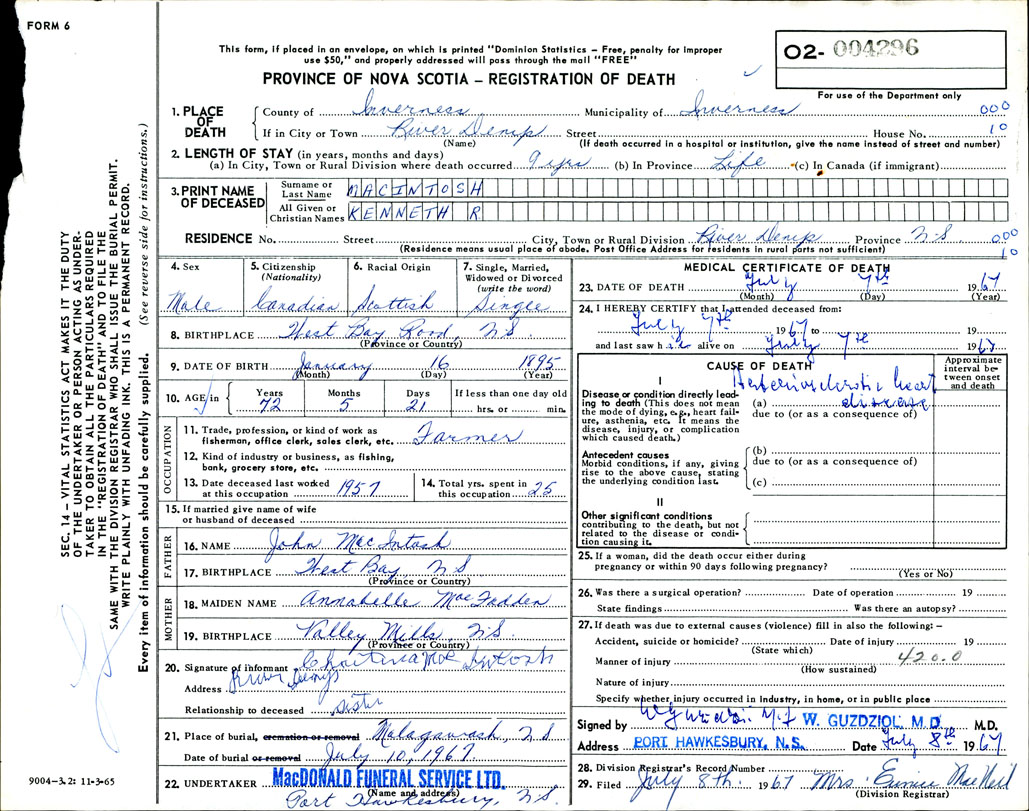 FORM 6
This form, if placed in an envelope, on which is printed "Dominion Statistics – Free, penalty for improper
use $50," and properly addressed will pass through the mail "FREE"
PROVINCE OF NOVA SCOTIA – REGISTRATION OF DEATH
02- 004296
For use of the Department only
1. PLACE OF DEATH
County of Inverness Municipality of Inverness 000
If in City or Town River Denys Street House No. 10
(Name) (If death occurred in a hospital or institution, give the name instead of street and number)
2. LENGTH OF STAY (in years, months and days)
(a) In City, Town or Rural Division where death occurred 9 yrs (b) In Province Life (c) In Canada (if immigrant)
3. PRINT NAME OF DECEASED
Surname or Last Name MACINTOSH
All Given or Christian Names KENNETH R
RESIDENCE No. Street City, Town or Rural Division River Denys Province N-S 000
(Residence means usual place of abode. Post Office Address for residents in rural parts not sufficient) 10
4. Sex Male
5. Citizenship (Nationality) Canadian
6. Racial Origin Scottish
7. Single, Married, Widowed or Divorced (write the word) Single
8. BIRTHPLACE West Bay Road, NS
(Province or Country)
9. DATE OF BIRTH January 16 1895
(Month) (Day) (Year)
10. AGE in Years 72 Months 5 Days 21 If less than one day old hrs. or min.
OCCUPATION
11. Trade, profession, or kind of work as fisherman, office clerk, sales clerk, etc. Farmer
12. Kind of industry or business, as fishing, bank, grocery store, etc.
13. Date deceased last worked at this occupation 1957
14. Total yrs. spent in this occupation 25
15. If married give name of wife or husband of deceased
FATHER
16. NAME John MacIntosh
17. BIRTHPLACE West Bay NS
(Province or Country)
MOTHER
18. MAIDEN NAME Annabelle MacFadden
19. BIRTHPLACE Valley Mills, NS.
(Province or Country)
20. Signature of informant Christina MacIntosh
Address River Denys
Relationship to deceased Sister
21. Place of burial, cremation or removal Malagawash, NS
Date of burial or removal July 10, 1967
22. UNDERTAKER MacDONALD FUNERAL SERVICE LTD.
(Name and address)
Port Hawkesbury, NS.
MEDICAL CERTIFICATE OF DEATH
23. DATE OF DEATH July 7th 1967
(Month) (Day) (Year)
24. I HEREBY CERTIFY that I attended deceased from:
July 7th 1967 to 19
and last saw him alive on July 7th 1967
CAUSE OF DEATH
Approximate interval between onset and death
I
Disease or condition directly leading to death (This does not mean the mode of dying, e.g., heart failure, asthenia, etc. It means the disease, injury, or complication which caused death.)
(a) Arteriosclerotic heart disease
due to (or as a consequence of)
Antecedent causes
Morbid conditions, if any, giving rise to the above cause, stating the underlying condition last.
(b)
due to (or as a consequence of)
(c)
II
Other significant conditions
contributing to the death, but not related to the disease or condition causing it.
25. If a woman, did the death occur either during
pregnancy or within 90 days following pregnancy?
(Yes or No)
26. Was there a surgical operation? Date of operation 19
State findings Was there an autopsy?
27. If death was due to external causes (violence) fill in also the following: –
Accident, suicide or homicide? Date of injury 19
(State which)
Manner of injury 420.0
(How sustained)
Nature of injury
Specify whether injury occurred in Industry, in home, or in public place
Signed by W. GUZDZIOL, M.D. M.D.
Address PORT HAWKESBURY, N.S. Date July 8th 1967
28. Division Registrar's Record Number
29. Filed July 8th 1967 Mrs Eunice MacNeil
(Division Registrar)
SEC. 14 – VITAL STATISTICS ACT MAKES IT THE DUTY
OF THE UNDERTAKER OR PERSON ACTING AS UNDER-
TAKER TO OBTAIN ALL THE PARTICULARS REQUIRED
IN THE "REGISTRATION OF DEATH" AND TO FILE THE
SAME WITH THE DIVISION REGISTRAR WHO SHALL ISSUE THE BURIAL PERMIT.
WRITE PLAINLY WITH UNFADING INK. THIS IS A PERMANENT RECORD.
Every item of information should be carefully supplied. (See reverse side for instructions.)
9004-3.2: 11-3-65